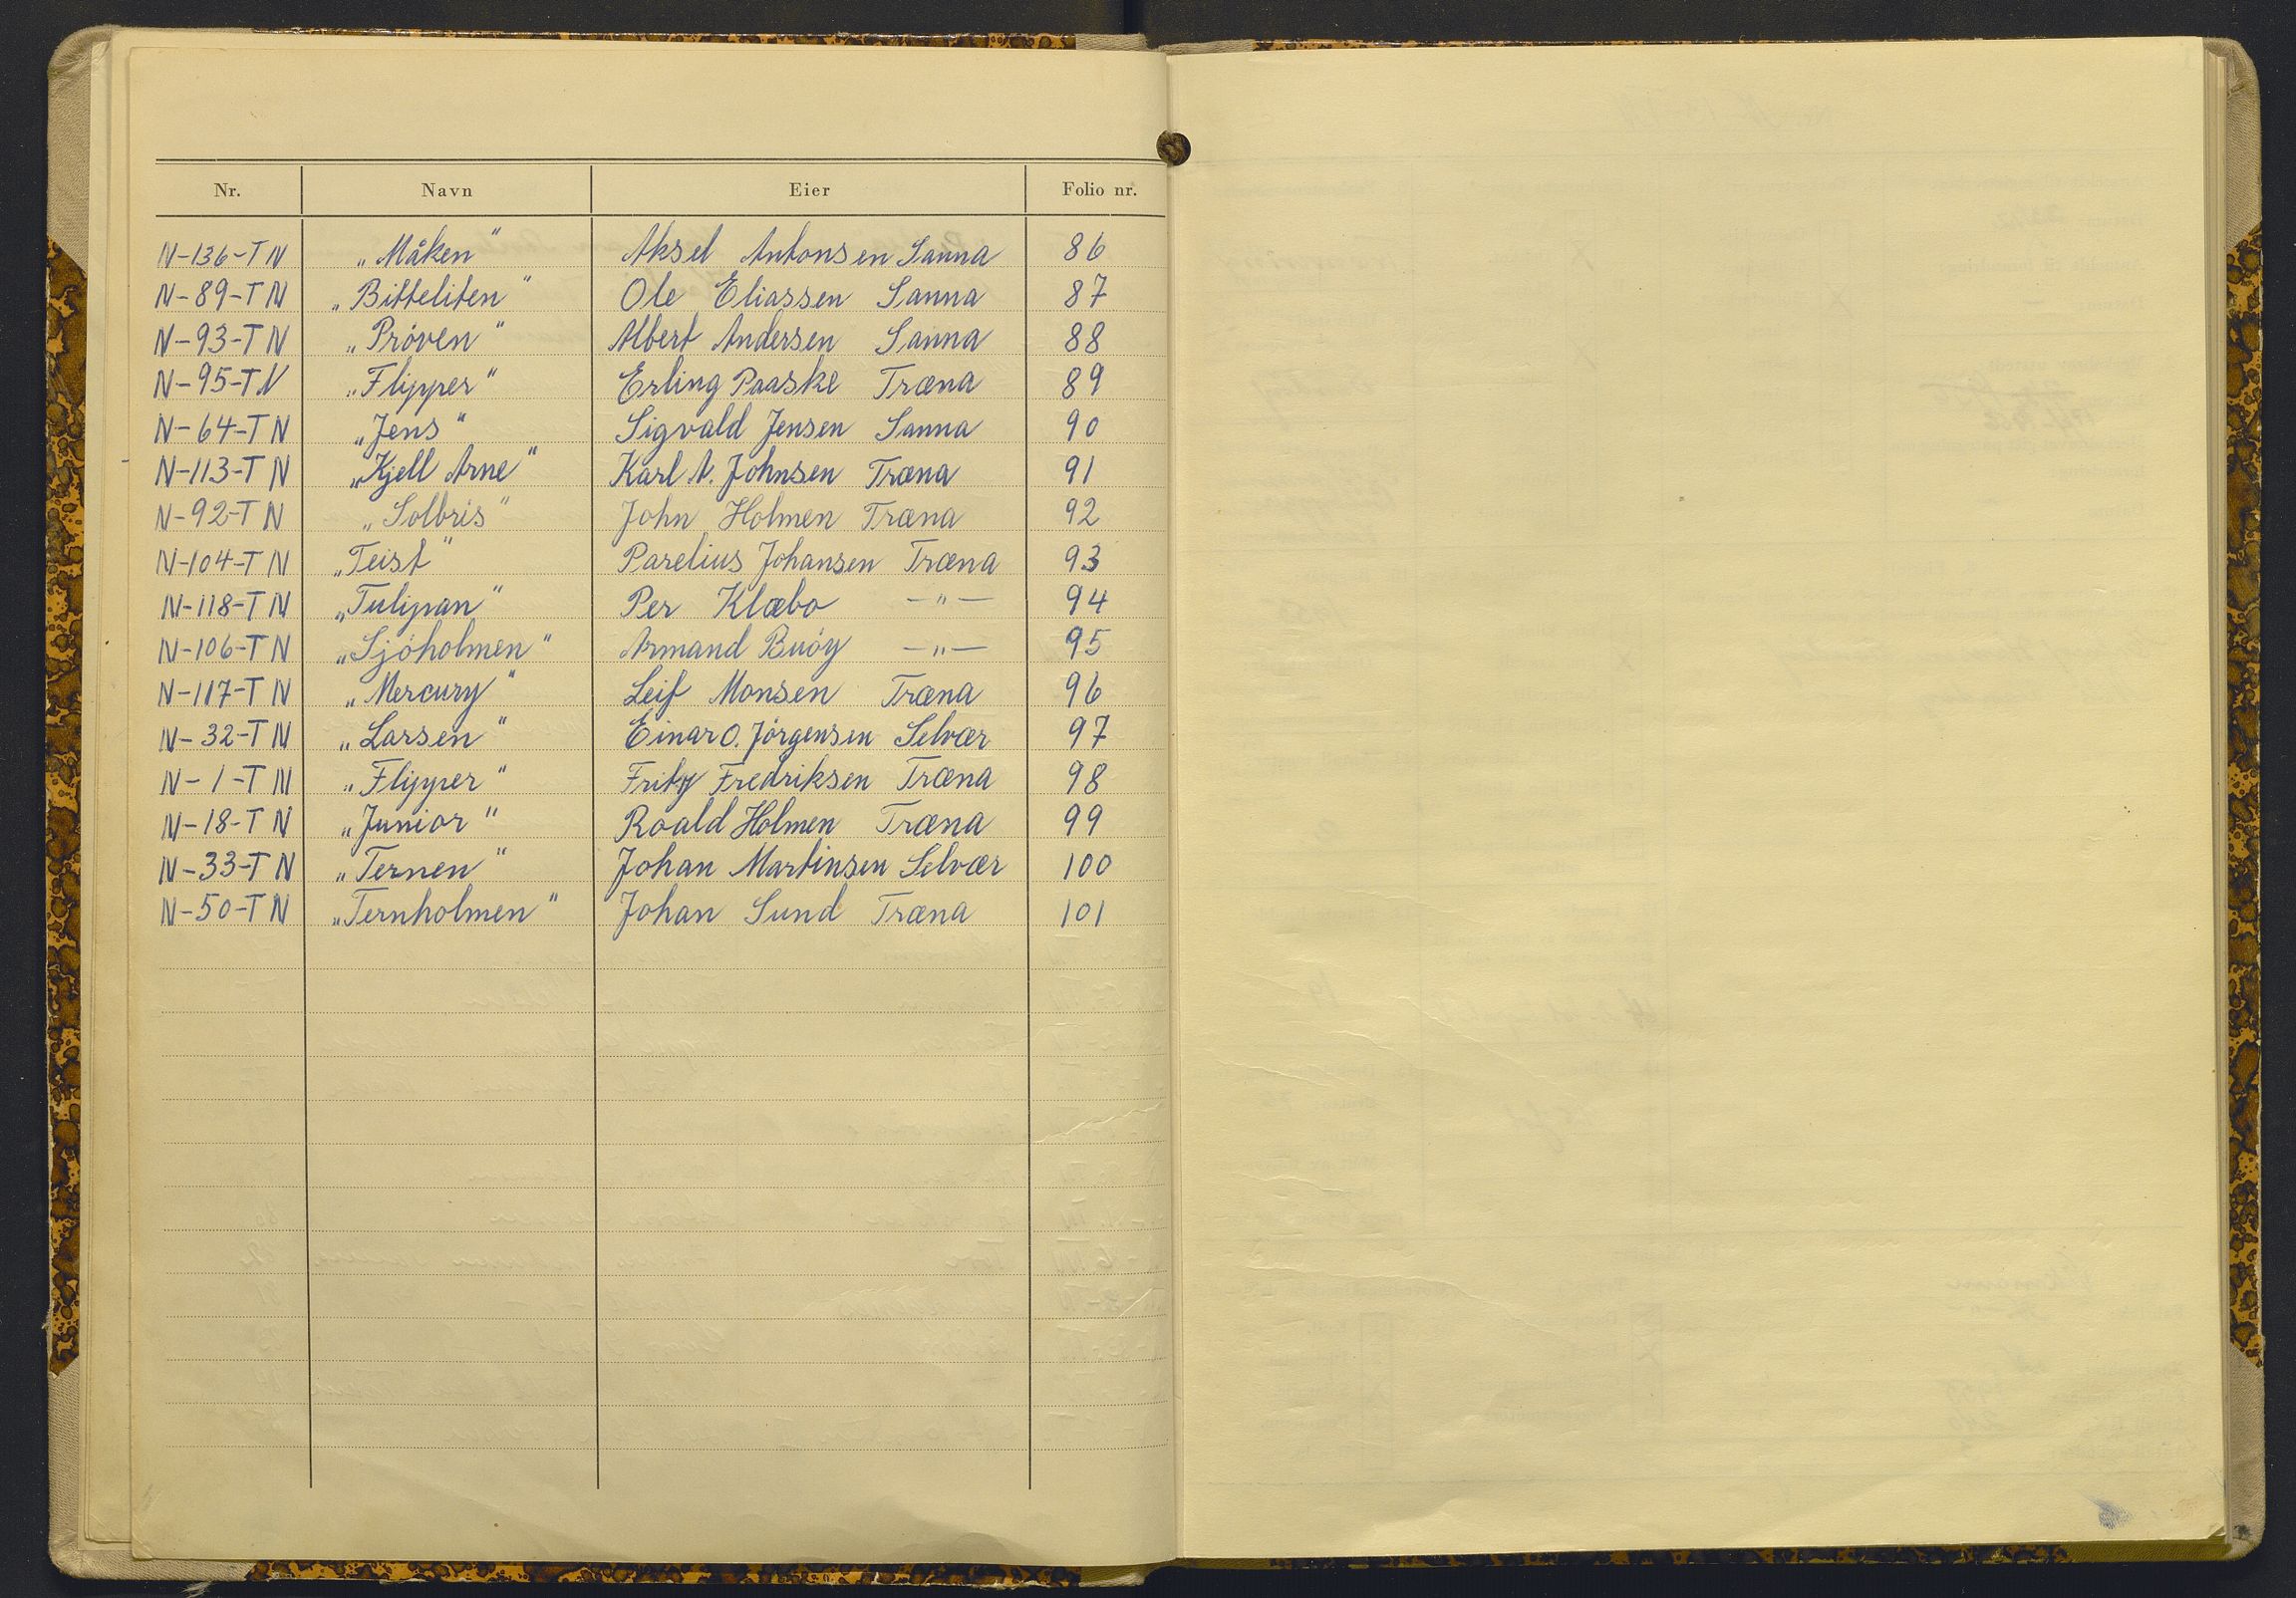 Nr. Navn Eier Folio nr.
N-136-TN „Måken" Aksel Antonsen Sanna 86
N-89-TN „Bitteliten" Ole Eliassen Sanna 87
N-93-TN „Prøven" Albert Andersen Sanna 88
N-95-TN „Flipper" Erling Paaske Træna 89
N-64-TN „Jens" Sigvald Jensen Sanna 90
N-113-TN „Kjell Arne" Karl A. Johnsen Træna 91
N-92-TN „Solbris" John Holmen Træna 92
N-104-TN „Teist" Parelius Johansen Træna 93
N-118-TN „Tulipan" Per Klæbo —"— 94
N-106-TN „Sjøholmen" Armand Buøy —"— 95
N-117-TN „Mercury" Leif Monsen Træna 96
N-32-TN „Larsen" Einar O. Jørgensen Selvær 97
N-1-TN „Flipper" Fritz Fredriksen Træna 98
N-18-TN „Junior" Roald Holmen Træna 99
N-33-TN „Ternen" Johan Martinsen Selvær 100
N-50-TN „Ternholmen" Johan Sund Træna 101